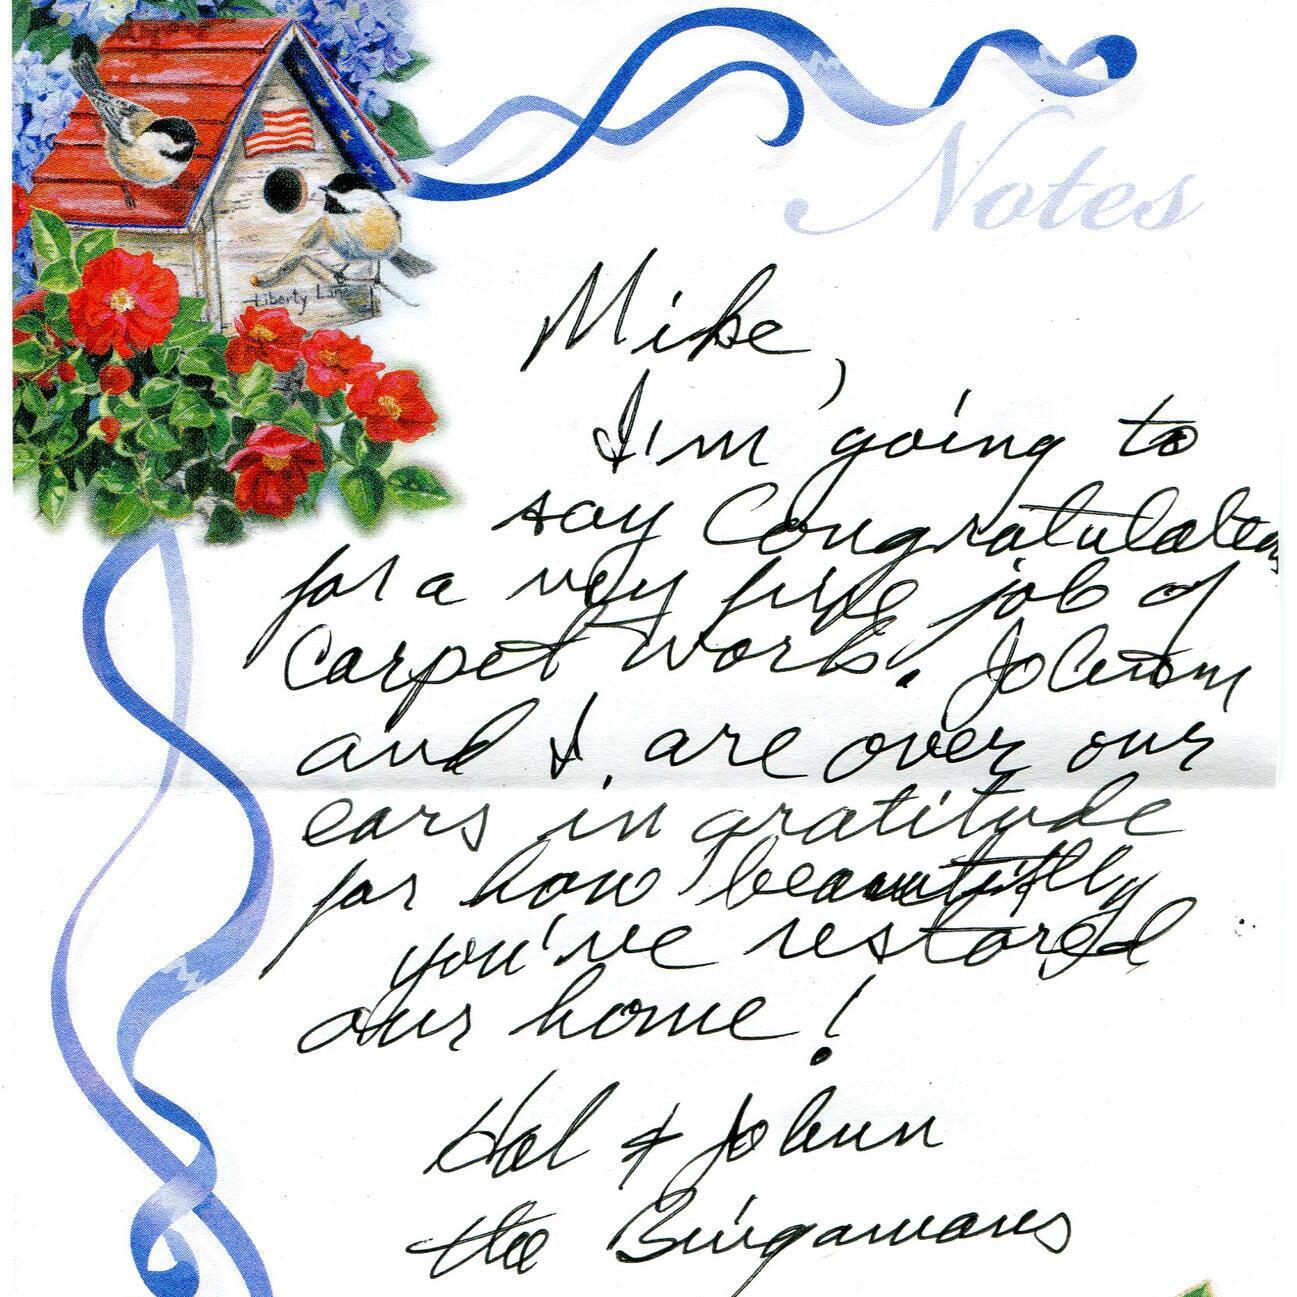 Notes
Liberty Lane
Mike,
I'm going to
say Congratulations
for a very fine job of
Carpet Work. JoAnn
and I are over our
ears in gratitude
for how beautifully
you've restored
our home!
Hal & JoAnn
the Bingamans